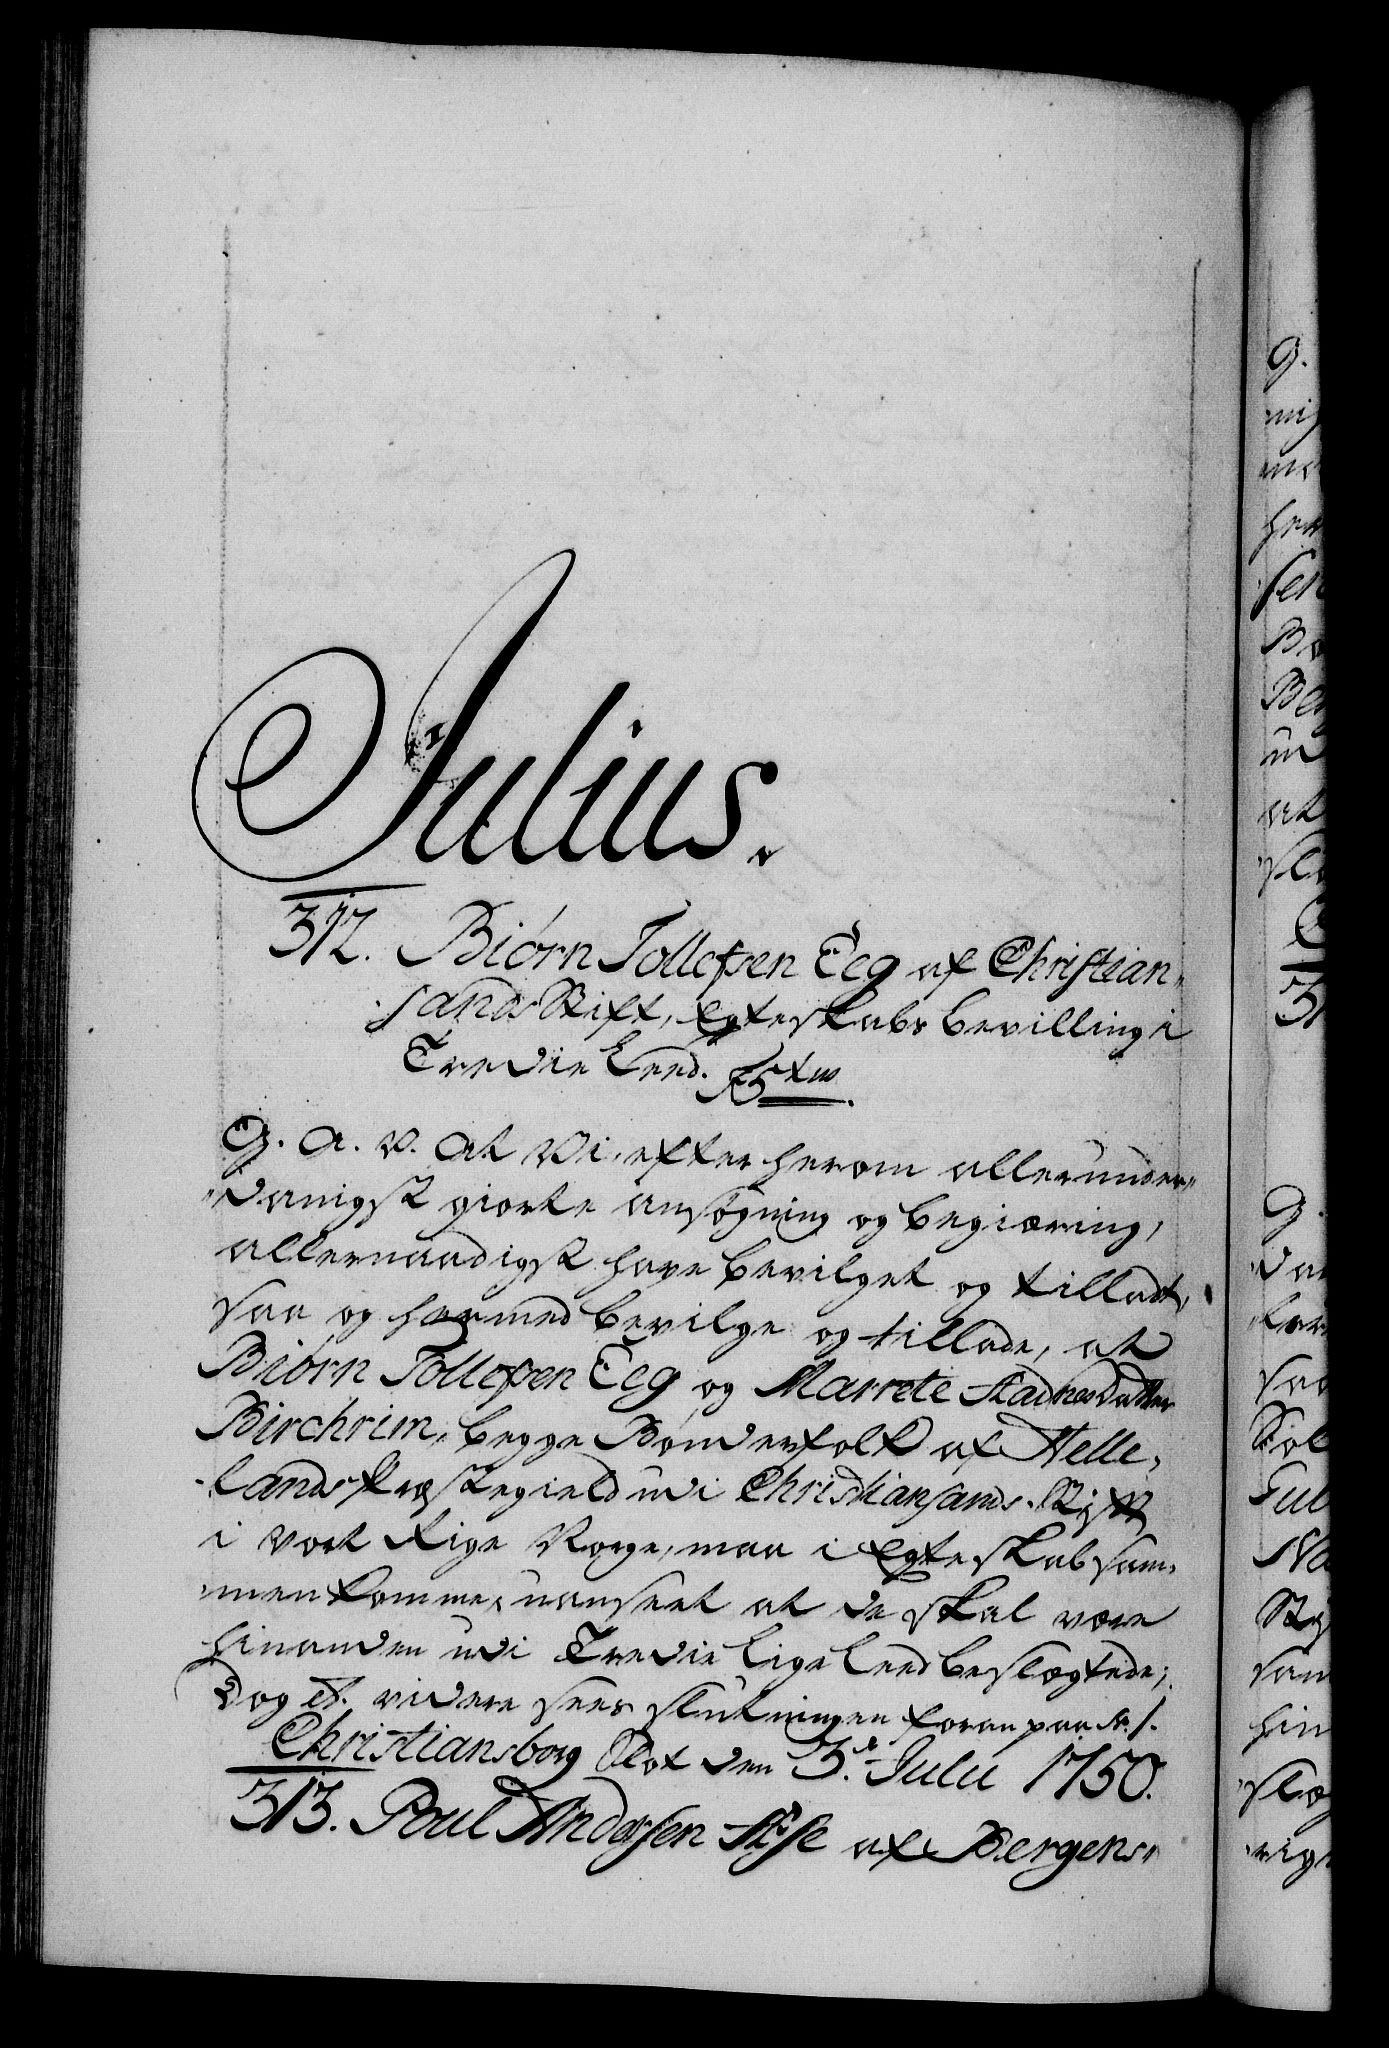 Julius.
312. Biørn Tollefsen Eeg af Christian„
sands Stift, Egteskabs bevilling i
Tredie Leed.
G. A. V. At Vi, efter herom allerunder„
„danigst giorte ansøgning og begiæring,
allernaadigst have bevilget og tilladt,
saa og hermed bevilge og tillade, at
Biørn Tollefsen Eeg og Marrete Stadnesdatter
Birchrim, begge Bønderfolk af Helle„
„lands Præstegield udi Christiansands Stift
i Vort Rige Norge, maa i Egteskab sam„
„men komme, uanseet at de skal være
hinanden udi Tredie lige Leed beslægtede;
Dog et. videre sees slutningen foran paa N. 1.
Christiansborg Slot den 3.die Julii 1750.
313. Poul Andersen af Bergens„
G.